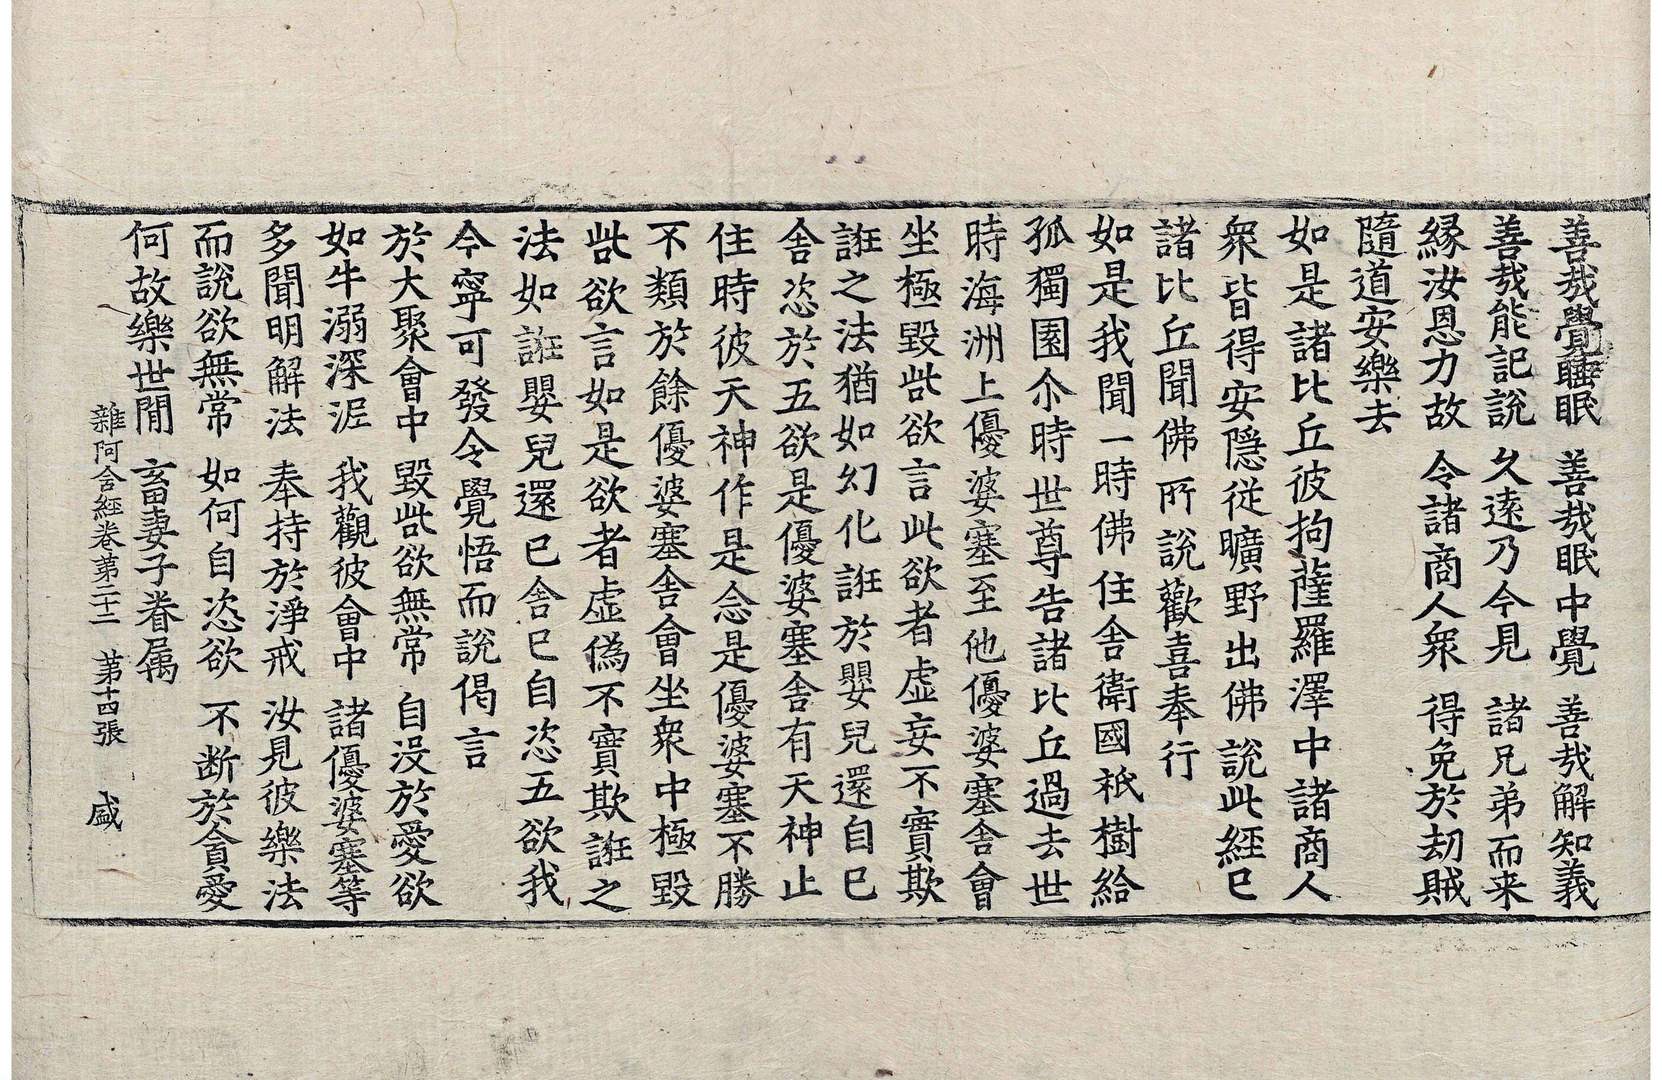 善哉覺睡眠　善哉眠中覺　善哉解知義
善哉能記說　久遠乃今見　諸兄弟而来
縁汝恩力故　令諸商人衆　得免於刧賊
隨道安樂去
如是諸比丘彼拘薩羅澤中諸商人
衆皆得安隠従曠野出佛說此經已
諸比丘聞佛所說歡喜奉行
如是我聞一時佛住舍衛國祇樹給
孤獨園尒時世尊告諸比丘過去世
時海洲上優婆塞至他優婆塞舍會
坐極毀呰欲言此欲者虛妄不實欺
誑之法猶如幻化誑於嬰兒還自已
舍恣於五欲是優婆塞舍有天神止
住時彼天神作是念是優婆塞不勝
不類於餘優婆塞舍會坐衆中極毀
呰欲言如是欲者虛偽不實欺誑之
法如誑嬰兒還已舍已自恣五欲我
今寧可發令覺悟而說偈言
於大聚會中　毀呰欲無常　自没於愛欲
如牛溺深泥　我觀彼會中　諸優婆塞等
多聞明解法　奉持於淨戒　汝見彼樂法
而說欲無常　如何自恣欲　不断於貪愛
何故樂世閒　畜妻子眷属
雜阿含經卷第二十二　第十四張　盛